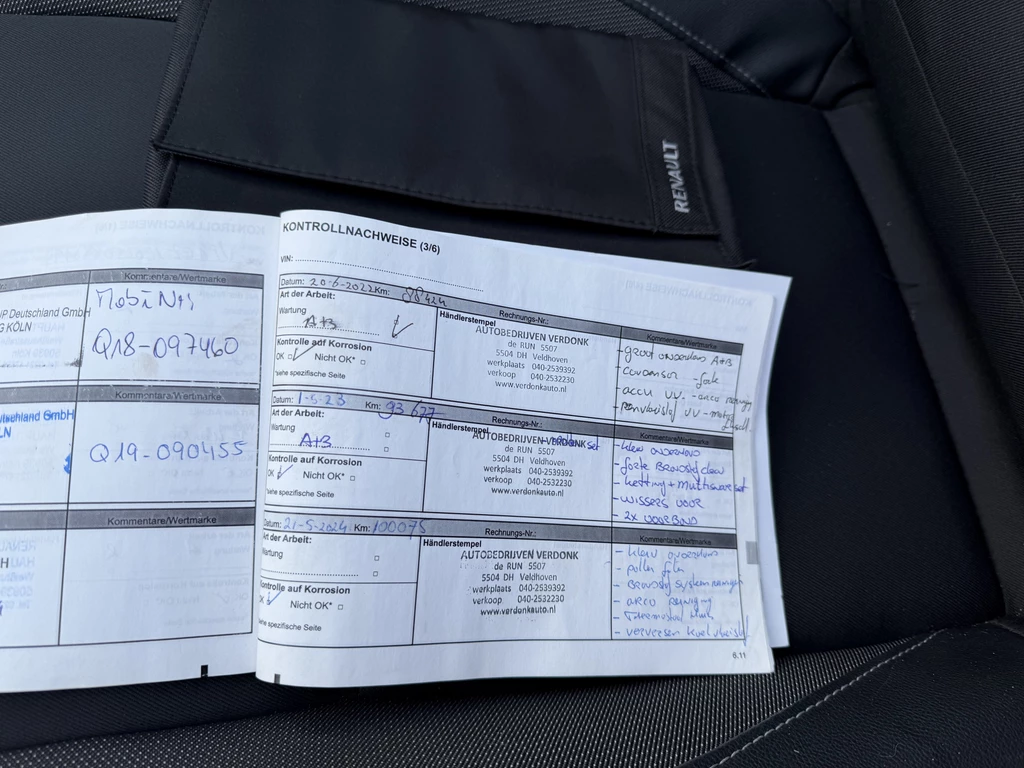 RENAULT
Kommentare/Wertmarke
VP Deutschland GmbH
G KÖLN
Q18-097460
Kommentare/Wertmarke
utschland GmbH
LN
Q19-090455
Kommentare/Wertmarke
KONTROLLNACHWEISE (3/6)
VIN:
Datum: 20-6-2022 Km: 88424
Art der Arbeit:
Rechnungs-Nr.:
Kommentare/Wertmarke
Wartung
A+B
Händlerstempel
AUTOBEDRIJVEN VERDONK
de RUN 5507
5504 DH Veldhoven
werkplaats 040-2539392
verkoop 040-2532230
www.verdonkauto.nl
Kontrolle auf Korrosion
OK Nicht OK*
*siehe spezifische Seite
- groot onderhoud A+B
- condensor
- accu VV - airco reinigen
Datum: 1-5-23 Km: 93677
Art der Arbeit:
Rechnungs-Nr.:
Kommentare/Wertmarke
Wartung
A+B
Händlerstempel
AUTOBEDRIJVEN VERDONK
de RUN 5507
5504 DH Veldhoven
werkplaats 040-2539392
verkoop 040-2532230
www.verdonkauto.nl
Kontrolle auf Korrosion
OK Nicht OK*
siehe spezifische Seite
- klein onderhoud
- ketting + multisnaar set
- wissers voor
- 2x voorband
Datum: 21-5-2024 Km: 100075
Art der Arbeit:
Rechnungs-Nr.:
Kommentare/Wertmarke
Wartung
Händlerstempel
AUTOBEDRIJVEN VERDONK
de RUN 5507
5504 DH Veldhoven
werkplaats 040-2539392
verkoop 040-2532230
www.verdonkauto.nl
Kontrolle auf Korrosion
OK Nicht OK*
siehe spezifische Seite
- klein onderhoud
- pollen filter
- brandstof systeem reinigen
- airco reiniging
- Thermostaat
- verversen koelvloeistof
6.11